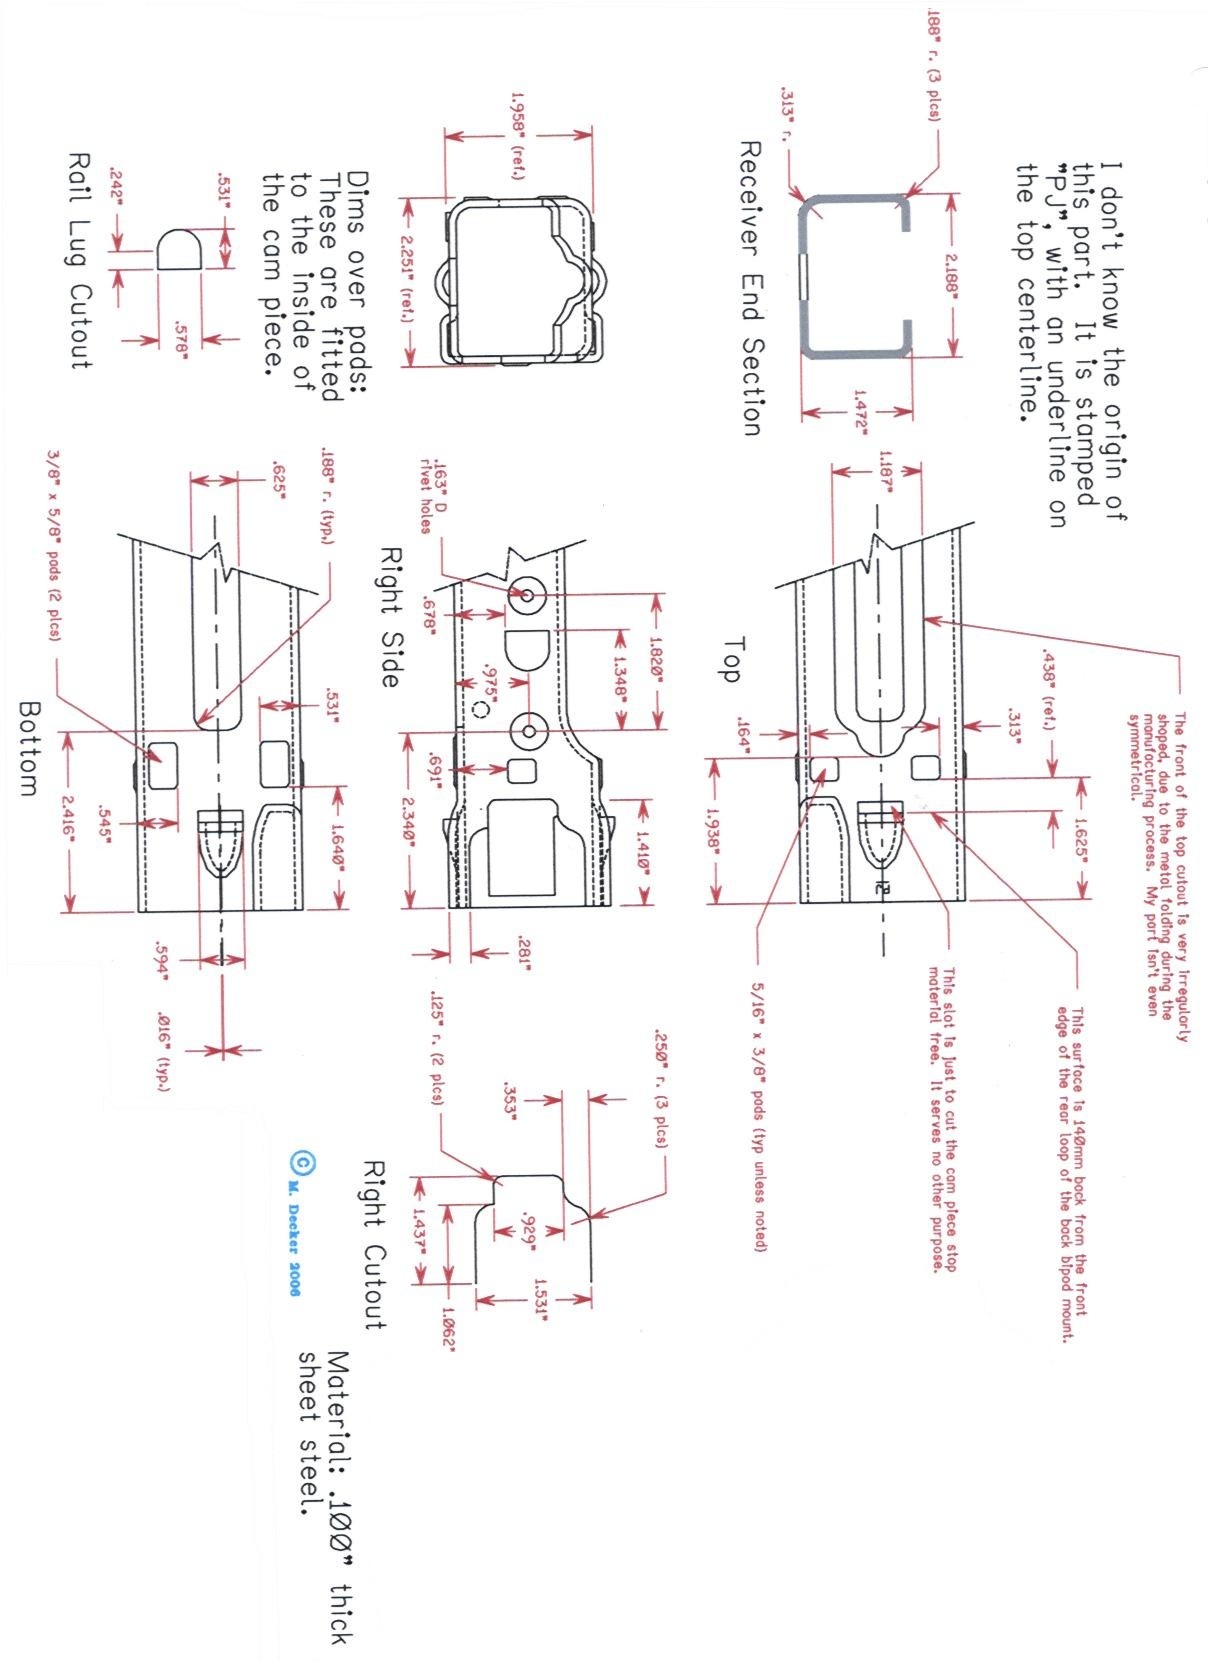 I don't know the origin of
this part. It is stamped
"PJ", with an underline on
the top centerline.
.188" r. (3 plcs)
.313" r.
2.188"
1.472"
Receiver End Section
1.958" (ref.)
2.251" (ref.)
Dims over pads:
These are fitted
to the inside of
the cam piece.
.531"
.242"
.578"
Rail Lug Cutout
The front of the top cutout is very irregularly
shaped, due to the metal folding during the
manufacturing process. My part isn't even
symmetrical.
1.187"
.438" (ref.)
.313"
.164"
1.625"
1.938"
Top
This surface is 140mm back from the front
edge of the rear loop of the back bipod mount.
This slot is just to cut the cam piece stop
material free. It serves no other purpose.
5/16" x 3/8" pads (typ unless noted)
.163" D
rivet holes
1.820"
1.348"
.678"
.975"
.691"
1.410"
2.340"
.281"
Right Side
.250" r. (3 plcs)
.353"
.125" r. (2 plcs)
.929"
1.531"
1.437"
1.062"
Right Cutout
.188" r. (typ.)
.625"
.531"
3/8" x 5/8" pads (2 plcs)
1.640"
.545"
2.416"
.594"
.016" (typ.)
Bottom
© M. Decker 2006
Material: .100" thick
sheet steel.